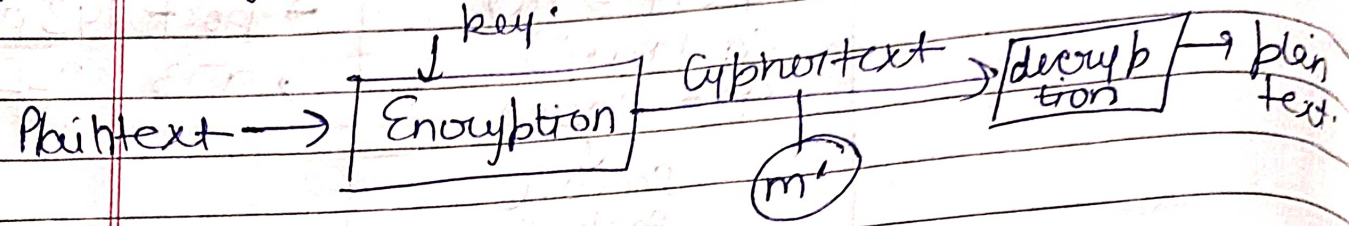 key.
Plaintext → Encryption Cyphertext → decryp
tion → plain
text.
m'